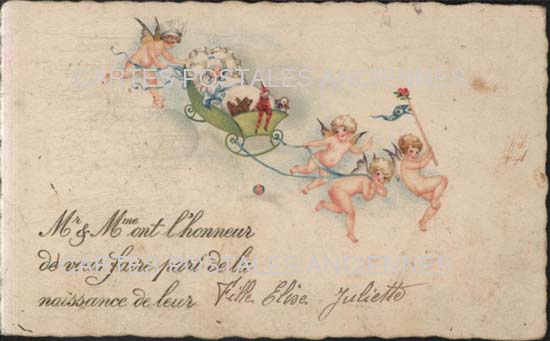 CARTES POSTALES ANCIENNES
Mr & Mme ont l'honneur
de vous faire part de la
CARTES POSTALES ANCIENNES
naissance de leur Fille Elise Juliette